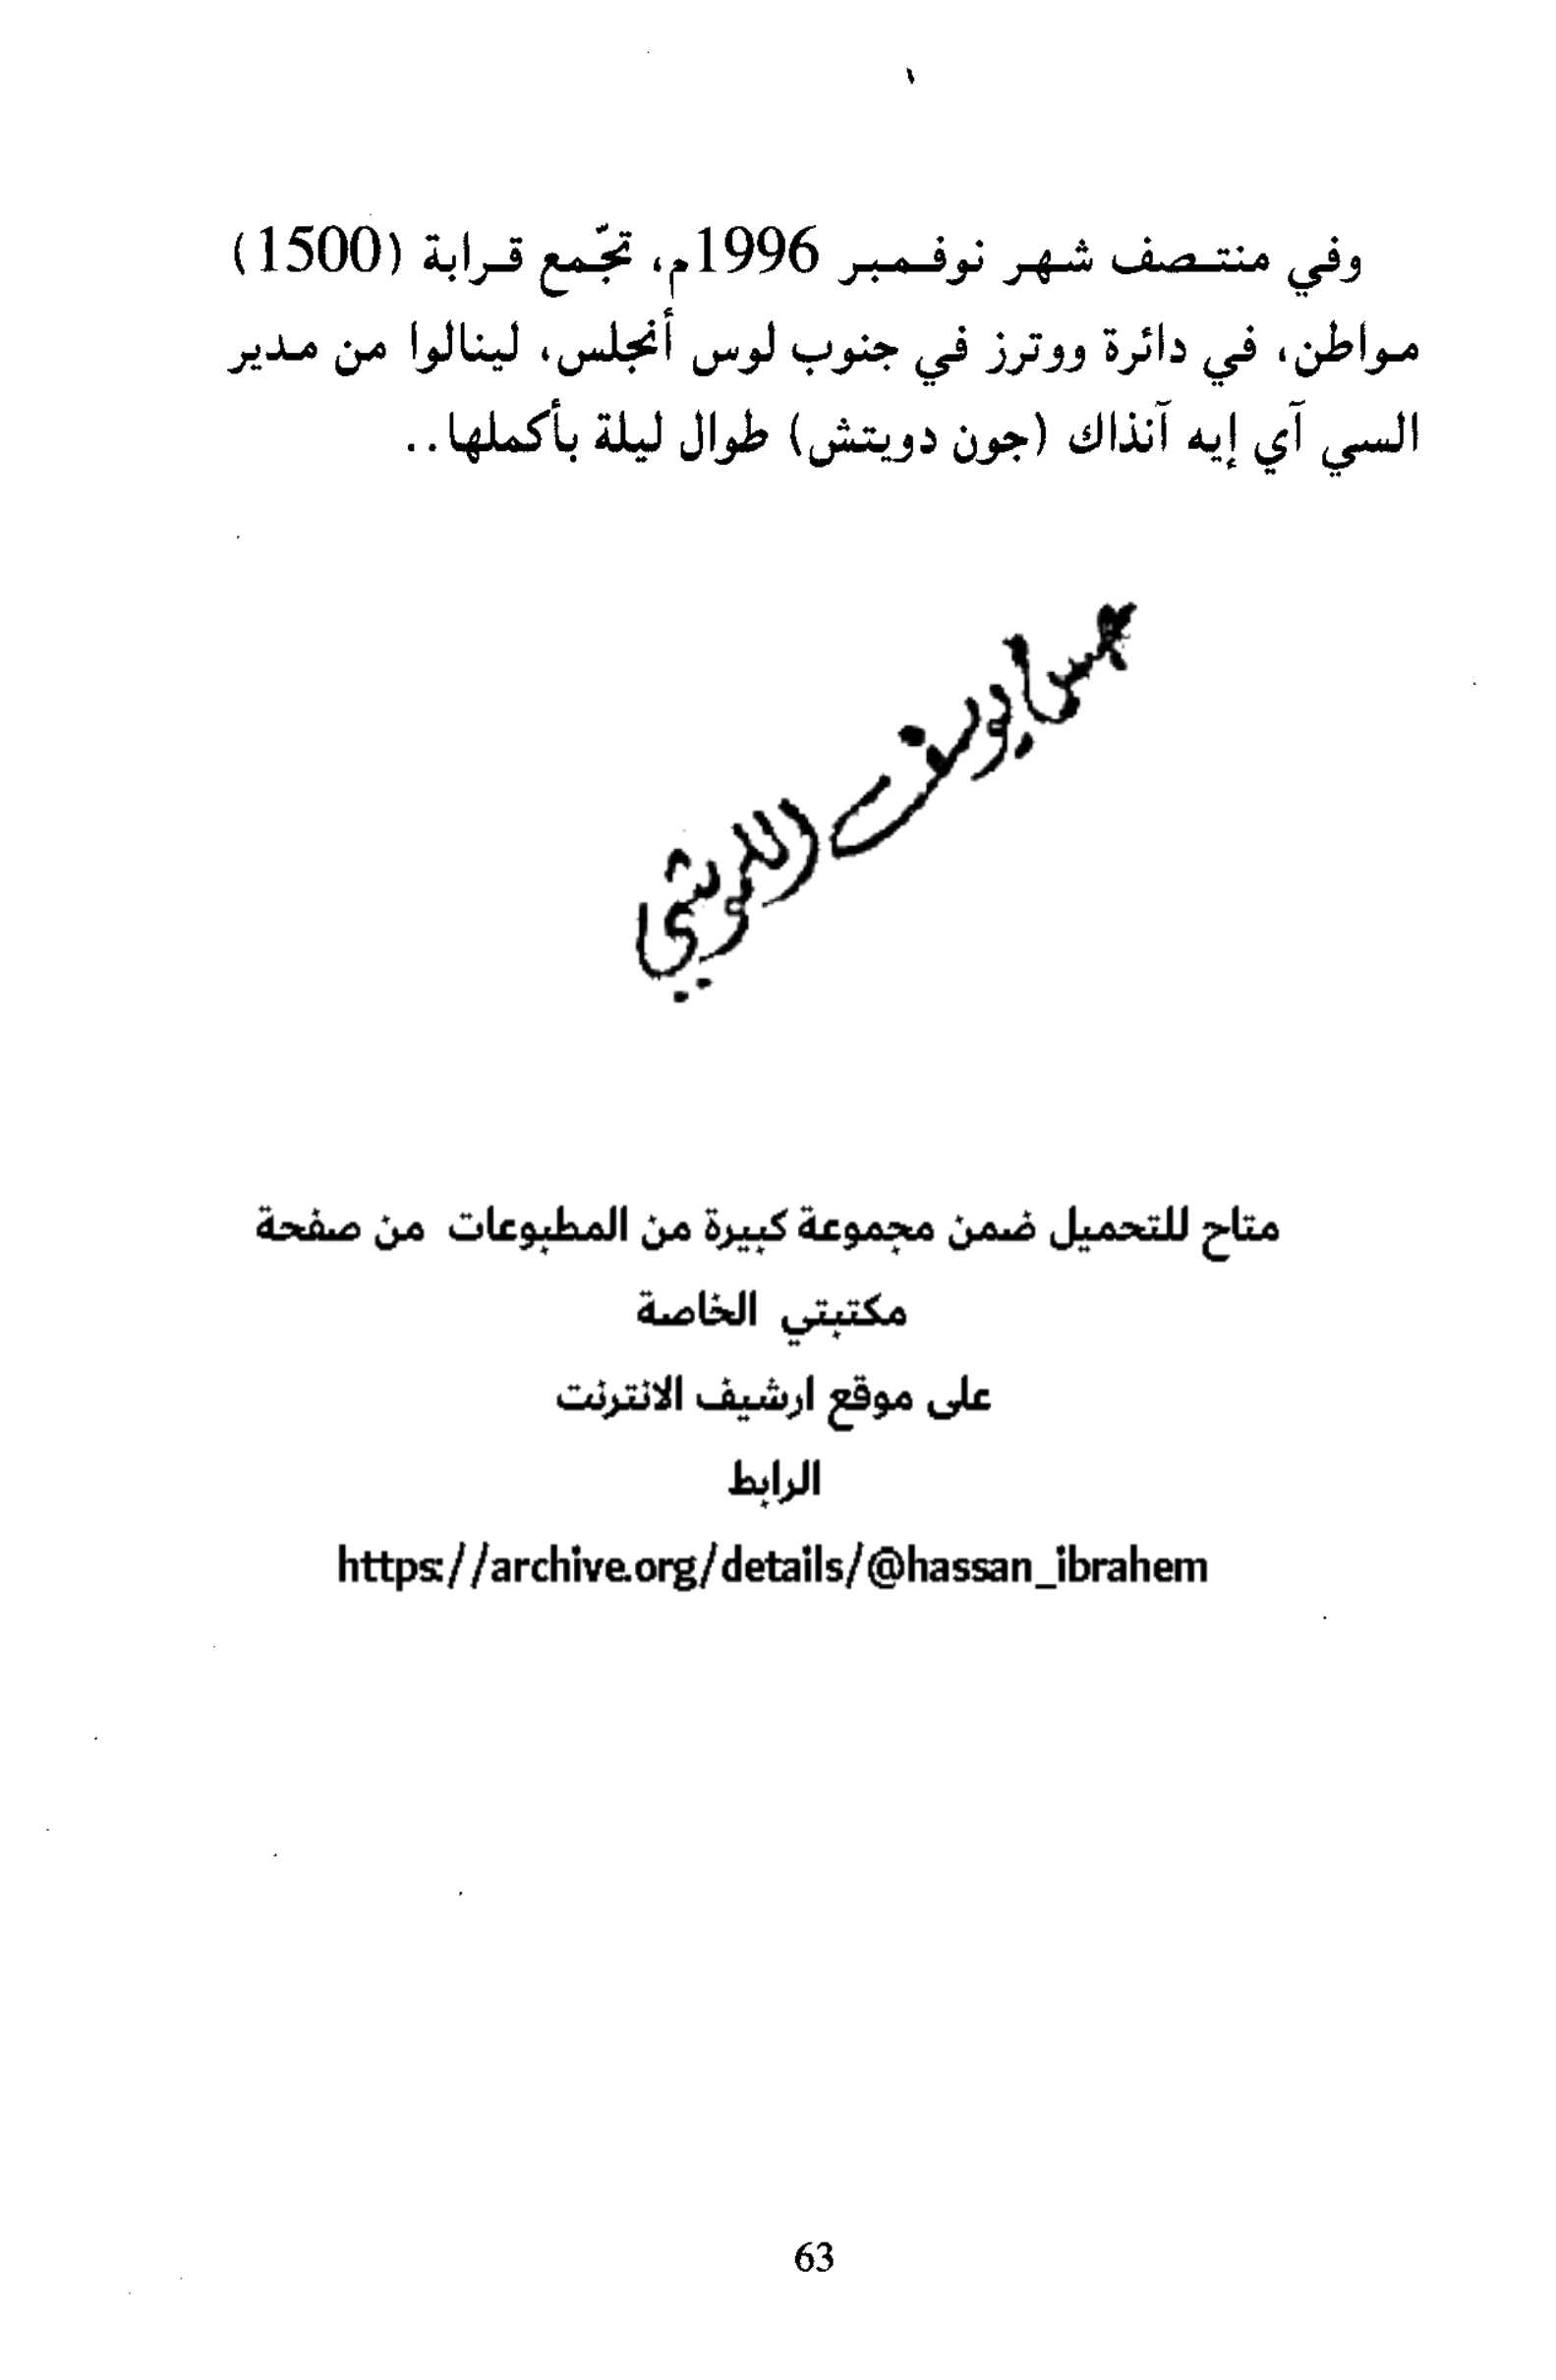 وفي منتصف شهر نوفمبر 1996م، تجّمع قرابة (1500)
مواطن، في دائرة ووترز في جنوب لوس أنجلس، لينالوا من مدير
السي آي إيه آنذاك (جون دويتش) طوال ليلة بأكملها..
يوسف
متاح للتحميل ضمن مجموعة كبيرة من المطبوعات من صفحة
مكتبتي الخاصة
على موقع ارشيف الانترنت
الرابط
https://archive.org/details/@hassan_ibrahem
63